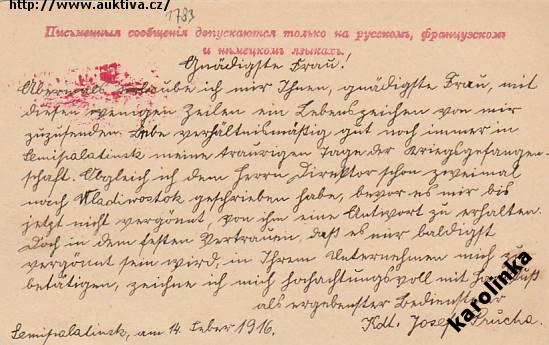 www.auktiva.cz
1783
Письменныя сообщенія допускаются только на русскомъ, французскомъ
и нѣмецкомъ языкахъ.
Gnädigste Frau!
Abermals erlaube ich mir Ihnen, gnädigste Frau, mit
diesen wenigen Zeilen ein Lebenszeichen von mir
zuzusenden. Lebe verhältnismäßig gut noch immer in
Semipalatinsk meine traurigen Tage der Kriegsgefangen-
schaft. Obgleich ich dem Herrn Direktor schon zweimal
nach Wladiwostok geschrieben habe, bevor es mir bis
jetzt nicht vergönnt, von ihm eine Antwort zu erhalten.
Doch in dem festen Vertrauen, daß es mir baldigst
vergönnt sein wird, in Ihrem Unternehmen mich zu
betätigen, zeichne ich mich hochachtungsvoll mit
als ergebenster
Semipalatinsk, am 14. 1916. Kdt. Josef Prucha
karolinka